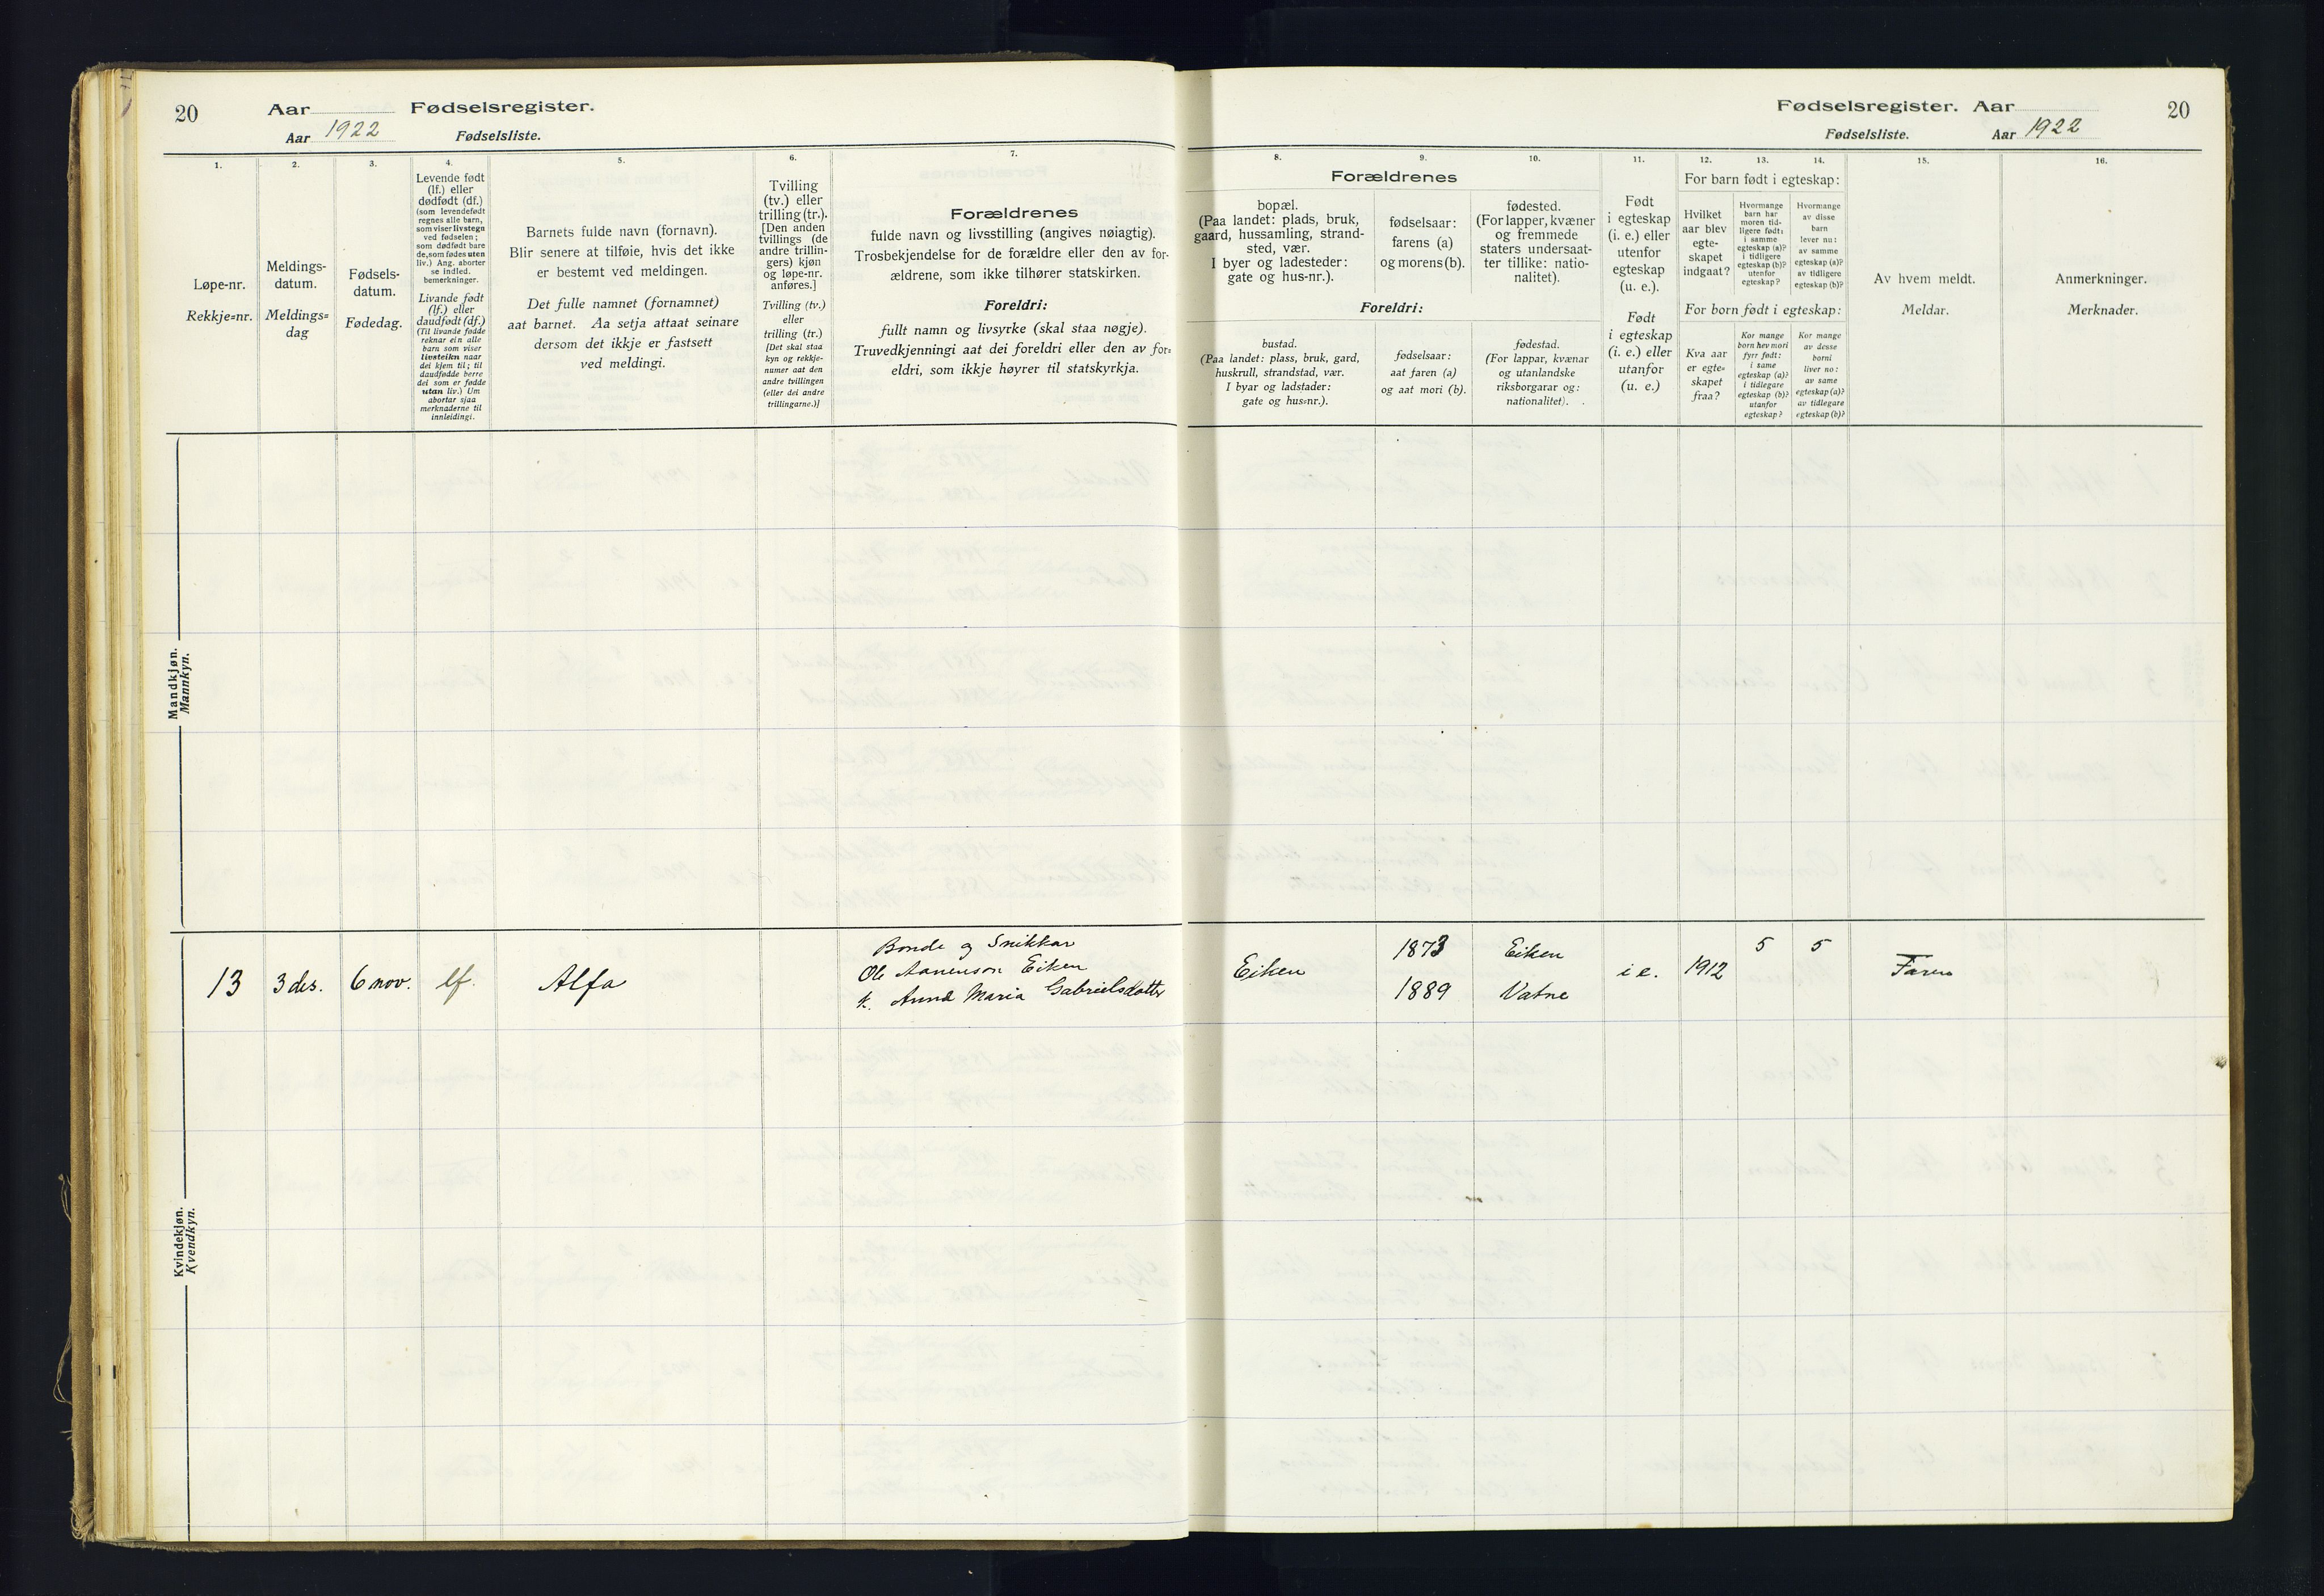 20
Aar
Fødselsregister.
Aar 1922
Fødselsliste.
1.
2.
3.
4.
5.
6.
7.
Løpe-nr.
Rekkje=nr.
Meldings-
datum.
Meldings=
dag
Fødsels-
datum.
Fødedag.
Levende født
(lf.) eller
dødfødt (df.)
(som levendefødt
regnes alle barn,
som viser livstegn
ved fødselen;
som dødfødt bare
de, som fødes uten
liv.) Ang. aborter
se indled.
bemerkninger.
Livande født
(lf.) eller
daudfødt (df.)
(Til livande fødde
reknar ein alle
barn som viser
livsteikn naar
dei kjem til; til
daudfødde berre
dei som er fødde
utan liv.) Um
abortar sjaa
merknaderne til
innleidingi.
Barnets fulde navn (fornavn).
Blir senere at tilføie, hvis det ikke
er bestemt ved meldingen.
Det fulle namnet (fornamnet)
aat barnet. Aa setja attaat seinare
dersom det ikkje er fastsett
ved meldingi.
Tvilling
(tv.) eller
trilling (tr.).
[Den anden
tvillings (de
andre trillin-
gers) kjøn
og løpe-nr.
anføres.]
Tvilling (tv.)
eller
trilling (tr.)
[Det skal staa
kyn og rekkje-
numer aat den
andre tvillingen
(eller dei andre
trillingarne.)]
Forældrenes
fulde navn og livsstilling (angives nøiagtig).
Trosbekjendelse for de forældre eller den av for-
ældrene, som ikke tilhører statskirken.
Foreldri:
fullt namn og livsyrke (skal staa nøgje).
Truvedkjenningi aat dei foreldri eller den av for=
eldri, som ikkje høyrer til statskyrkja.
Mandkjøn.
Mannkyn.
13
3 des.
6 nov.
lf.
Alfa
Bonde og Snikkar
Ole Aanenson Eiken
k. Anna Maria Gabrielsdotter
Kvindekjøn.
Kvendkyn.
Fødselsregister. Aar
20
Fødselsliste.
Aar 1922
8.
9.
10.
11.
12.
13.
14.
15.
16.
Forældrenes
bopæl.
(Paa landet: plads, bruk,
gaard, hussamling, strand-
sted, vær.
I byer og ladesteder:
gate og hus-nr.).
fødselsaar:
farens (a)
og morens (b).
fødested.
(For lapper, kvæner
og fremmede
staters undersaat-
ter tillike: natio-
nalitet).
Foreldri:
bustad.
(Paa landet: plass, bruk, gard,
huskrull, strandstad, vær.
I byar og ladstader:
gate og hus=nr.).
fødselsaar:
aat faren (a)
og aat mori (b).
fødestad.
(For lappar, kvænar
og utanlandske
riksborgarar og:
nationalitet).
Født
i egteskap
(i. e.) eller
utenfor
egteskap
(u. e.).
Født
i egteskap
(i. e.) eller
utanfor
(u. e.)
For barn født i egteskap:
Hvilket
aar blev
egte-
skapet
indgaat?
Hvormange
barn har
moren tid-
ligere født:
i samme
egteskap (a)?
i tidligere
egteskap (b)?
utenfor
egteskap?
Hvormange
av disse
barn
lever nu:
av samme
egteskap (a)?
av tidligere
egteskap (b)?
For born født i egteskap:
Kva aar
er egte=
skapet
fraa?
Kor mange
born hev mori
fyrr født:
i same
egteskap (a)?
i tidlegare
egteskap (b)?
utanfor
egteskap?
Kor mange
av desse
borni
liver no:
av same
egteskap (a)?
av tidlegare
egteskap (b)?
Av hvem meldt.
Meldar.
Anmerkninger.
Merknader.
Eiken
1873
1889
Eiken
Vatne
i e.
1912
5
5
Faren